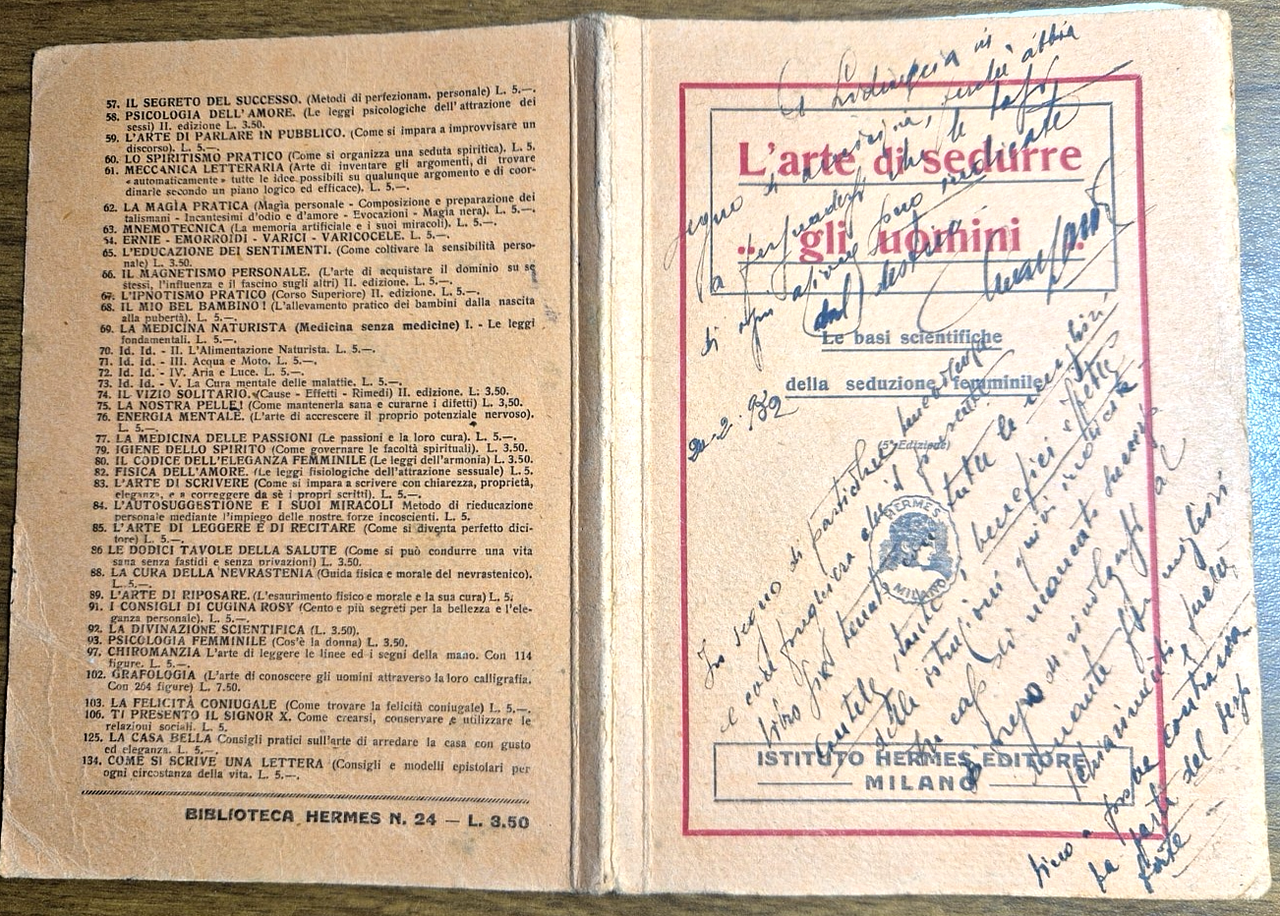 57. IL SEGRETO DEL SUCCESSO. (Metodi di perfezionam. personale) L. 5.—.
58. PSICOLOGIA DELL'AMORE. (Le leggi psicologiche dell'attrazione dei
sessi) II. edizione L. 3.50.
59. L'ARTE DI PARLARE IN PUBBLICO. (Come si impara a improvvisare un
discorso). L. 5.—.
60. LO SPIRITISMO PRATICO (Come si organizza una seduta spiritica). L. 5.
61. MECCANICA LETTERARIA (Arte di inventare gli argomenti, di trovare
«automaticamente» tutte le idee possibili su qualunque argomento e di coor-
dinarle secondo un piano logico ed efficace). L. 5.—.
62. LA MAGIA PRATICA (Magia personale - Composizione e preparazione dei
talismani - Incantesimi d'odio e d'amore - Evocazioni - Magia nera). L. 5.—.
63. MNEMOTECNICA (La memoria artificiale e i suoi miracoli). L. 5.—.
54. ERNIE - EMORROIDI - VARICI - VARICOCELE. L. 5.—.
65. L'EDUCAZIONE DEI SENTIMENTI. (Come coltivare la sensibilità perso-
nale) L. 3.50.
66. IL MAGNETISMO PERSONALE. (L'arte di acquistare il dominio su se
stessi, l'influenza e il fascino sugli altri) II. edizione. L. 5.—.
67. L'IPNOTISMO PRATICO (Corso Superiore) II. edizione. L. 5.—.
68. IL MIO BEL BAMBINO! (L'allevamento pratico dei bambini dalla nascita
alla pubertà). L. 5.—.
69. LA MEDICINA NATURISTA (Medicina senza medicine) I. - Le leggi
fondamentali. L. 5.—.
70. Id. Id. - II. L'Alimentazione Naturista. L. 5.—.
71. Id. Id. - III. Acqua e Moto. L. 5.—.
72. Id. Id. - IV. Aria e Luce. L. 5.—.
73. Id. Id. - V. La Cura mentale delle malattie. L. 5.—.
74. IL VIZIO SOLITARIO. (Cause - Effetti - Rimedi) II. edizione. L. 3,50.
75. LA NOSTRA PELLE! (Come mantenerla sana e curarne i difetti) L. 3.50.
76. ENERGIA MENTALE. (L'arte di accrescere il proprio potenziale nervoso).
L. 5.—.
77. LA MEDICINA DELLE PASSIONI (Le passioni e la loro cura). L. 5.—.
79. IGIENE DELLO SPIRITO (Come governare le facoltà spirituali). L. 3.50.
80. IL CODICE DELL'ELEGANZA FEMMINILE (Le leggi dell'armonia) L. 3.50.
82. FISICA DELL'AMORE. (Le leggi fisiologiche dell'attrazione sessuale) L. 5.
83. L'ARTE DI SCRIVERE (Come si impara a scrivere con chiarezza, proprietà,
eleganza, e a correggere da sè i propri scritti). L. 5.—.
84. L'AUTOSUGGESTIONE E I SUOI MIRACOLI Metodo di rieducazione
personale mediante l'impiego delle nostre forze incoscienti. L. 5.
85. L'ARTE DI LEGGERE E DI RECITARE (Come si diventa perfetto dici-
tore) L. 5.—.
86 LE DODICI TAVOLE DELLA SALUTE (Come si può condurre una vita
sana senza fastidi e senza privazioni) L. 3.50.
88. LA CURA DELLA NEVRASTENIA (Guida fisica e morale del nevrastenico).
L. 5.—.
89. L'ARTE DI RIPOSARE. (L'esaurimento fisico e morale e la sua cura) L. 5;
91. I CONSIGLI DI CUGINA ROSY (Cento e più segreti per la bellezza e l'ele-
ganza personale). L. 5.—.
92. LA DIVINAZIONE SCIENTIFICA (L. 3.50).
93. PSICOLOGIA FEMMINILE (Cos'è la donna) L. 3.50.
97. CHIROMANZIA L'arte di leggere le linee ed i segni della mano. Con 114
figure. L. 5.—.
102. GRAFOLOGIA (L'arte di conoscere gli uomini attraverso la loro calligrafia.
Con 264 figure) L. 7.50.
103. LA FELICITÀ CONIUGALE (Come trovare la felicità coniugale) L. 5.—.
106. TI PRESENTO IL SIGNOR X. Come crearsi, conservare e utilizzare le
relazioni sociali. L. 5.
125. LA CASA BELLA Consigli pratici sull'arte di arredare la casa con gusto
ed eleganza. L. 5.—.
134. COME SI SCRIVE UNA LETTERA (Consigli e modelli epistolari per
ogni circostanza della vita. L. 5.—.
BIBLIOTECA HERMES N. 24 — L. 3.50
in
segno di amicizia, perchè abbia
a persuadersi che le
di ogni azione sono indicate
dal destino
L'arte di sedurre
.. gli uomini ..
Le basi scientifiche
della seduzione femminile
(5ª Edizione)
HERMES
MILANO
In segno di particolare
e con preghiera che il presente
libro
delle istruzioni quivi indicate
In caso di mancato
chiarimenti
parte del sesso
forte
ISTITUTO HERMES EDITORE
MILANO